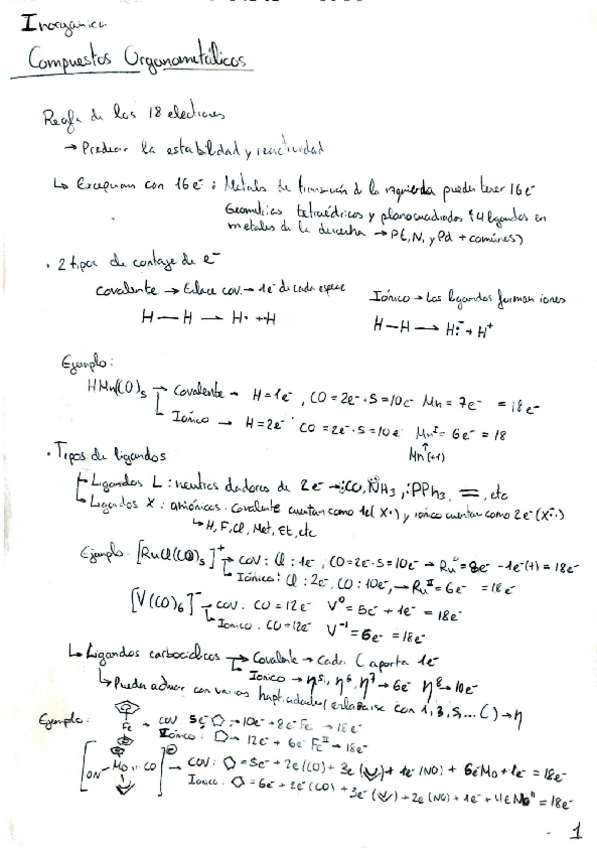 Inorgánica
Compuestos Organometálicos
Regla de los 18 electrones
→ Predecir la estabilidad y reactividad
↳ Excepcion con 16e⁻ : Metales de transición de la izquierda pueden tener 16e⁻
Geometrias tetraédricas y planocuadradas (4 ligandos en
metales de la derecha → Pt, Ni y Pd + comúnes)
· 2 tipos de contaje de e⁻
Covalente → Enlace cov. → 1e⁻ de cada especie
Iónico → Los ligandos forman iones
H — H → H· + ·H
H — H → H:⁻ + H⁺
Ejemplo:
HMn(CO)₅ → Covalente → H = 1e⁻, CO = 2e⁻·5 = 10e⁻ Mn = 7e⁻ = 18e⁻
↳ Ionico → H = 2e⁻ CO = 2e⁻·5 = 10e⁻ Mnᴵ = 6e⁻ = 18
Mn(+1)
· Tipos de ligandos
Ligandos L : neutros dadores de 2e⁻ → :CO, NH₃, :PPh₃, =, etc
Ligandos X : aniónicos. Covalente cuentan como 1e(X·) y ionico cuentan como 2e⁻(X:⁻)
↳ H, F, Cl, Met, Et, etc
Ejemplo. [RuCl(CO)₅]⁺ → Cov: Cl : 1e⁻, CO = 2e⁻·5 = 10e⁻ → Ru⁰ = 8e⁻ - 1e⁻(+) = 18e⁻
Iónico: Cl : 2e⁻, CO : 10e⁻, → Ruᴵᴵ = 6e⁻ = 18e⁻
[V(CO)₆]⁻ → cov. CO = 12e⁻ V⁰ = 5e⁻ + 1e⁻ = 18e⁻
Ionico. CO = 12e⁻ V⁻¹ = 6e⁻ = 18e⁻
↳ Ligandos carbocíclicos → Covalente → Cada C aporta 1e⁻
Ionico → η⁵, η⁶, η⁷ → 6e⁻ η⁸ → 10e⁻
↳ Pueden actuar con varias hapticidades (enlazarse con 1, 3, 5, ... C) → η
Ejemplo:
Fe → cov 5e⁻ → 10e⁻ + 8e⁻ Fe → 18e⁻
Iónico: → 12e⁻ + 6e⁻ Feᴵᴵ → 18e⁻
[ON — Mo ·· CO]⁻ → cov: = 5e⁻ + 2e(CO) + 3e + 1e⁻(NO) + 6e⁻ Mo + 1e⁻ = 18e⁻
Ionico. = 6e⁻ + 2e⁻(CO) + 3e⁻ + 2e(NO) + 1e⁻ + 4e Moᴵᴵ = 18e⁻
1